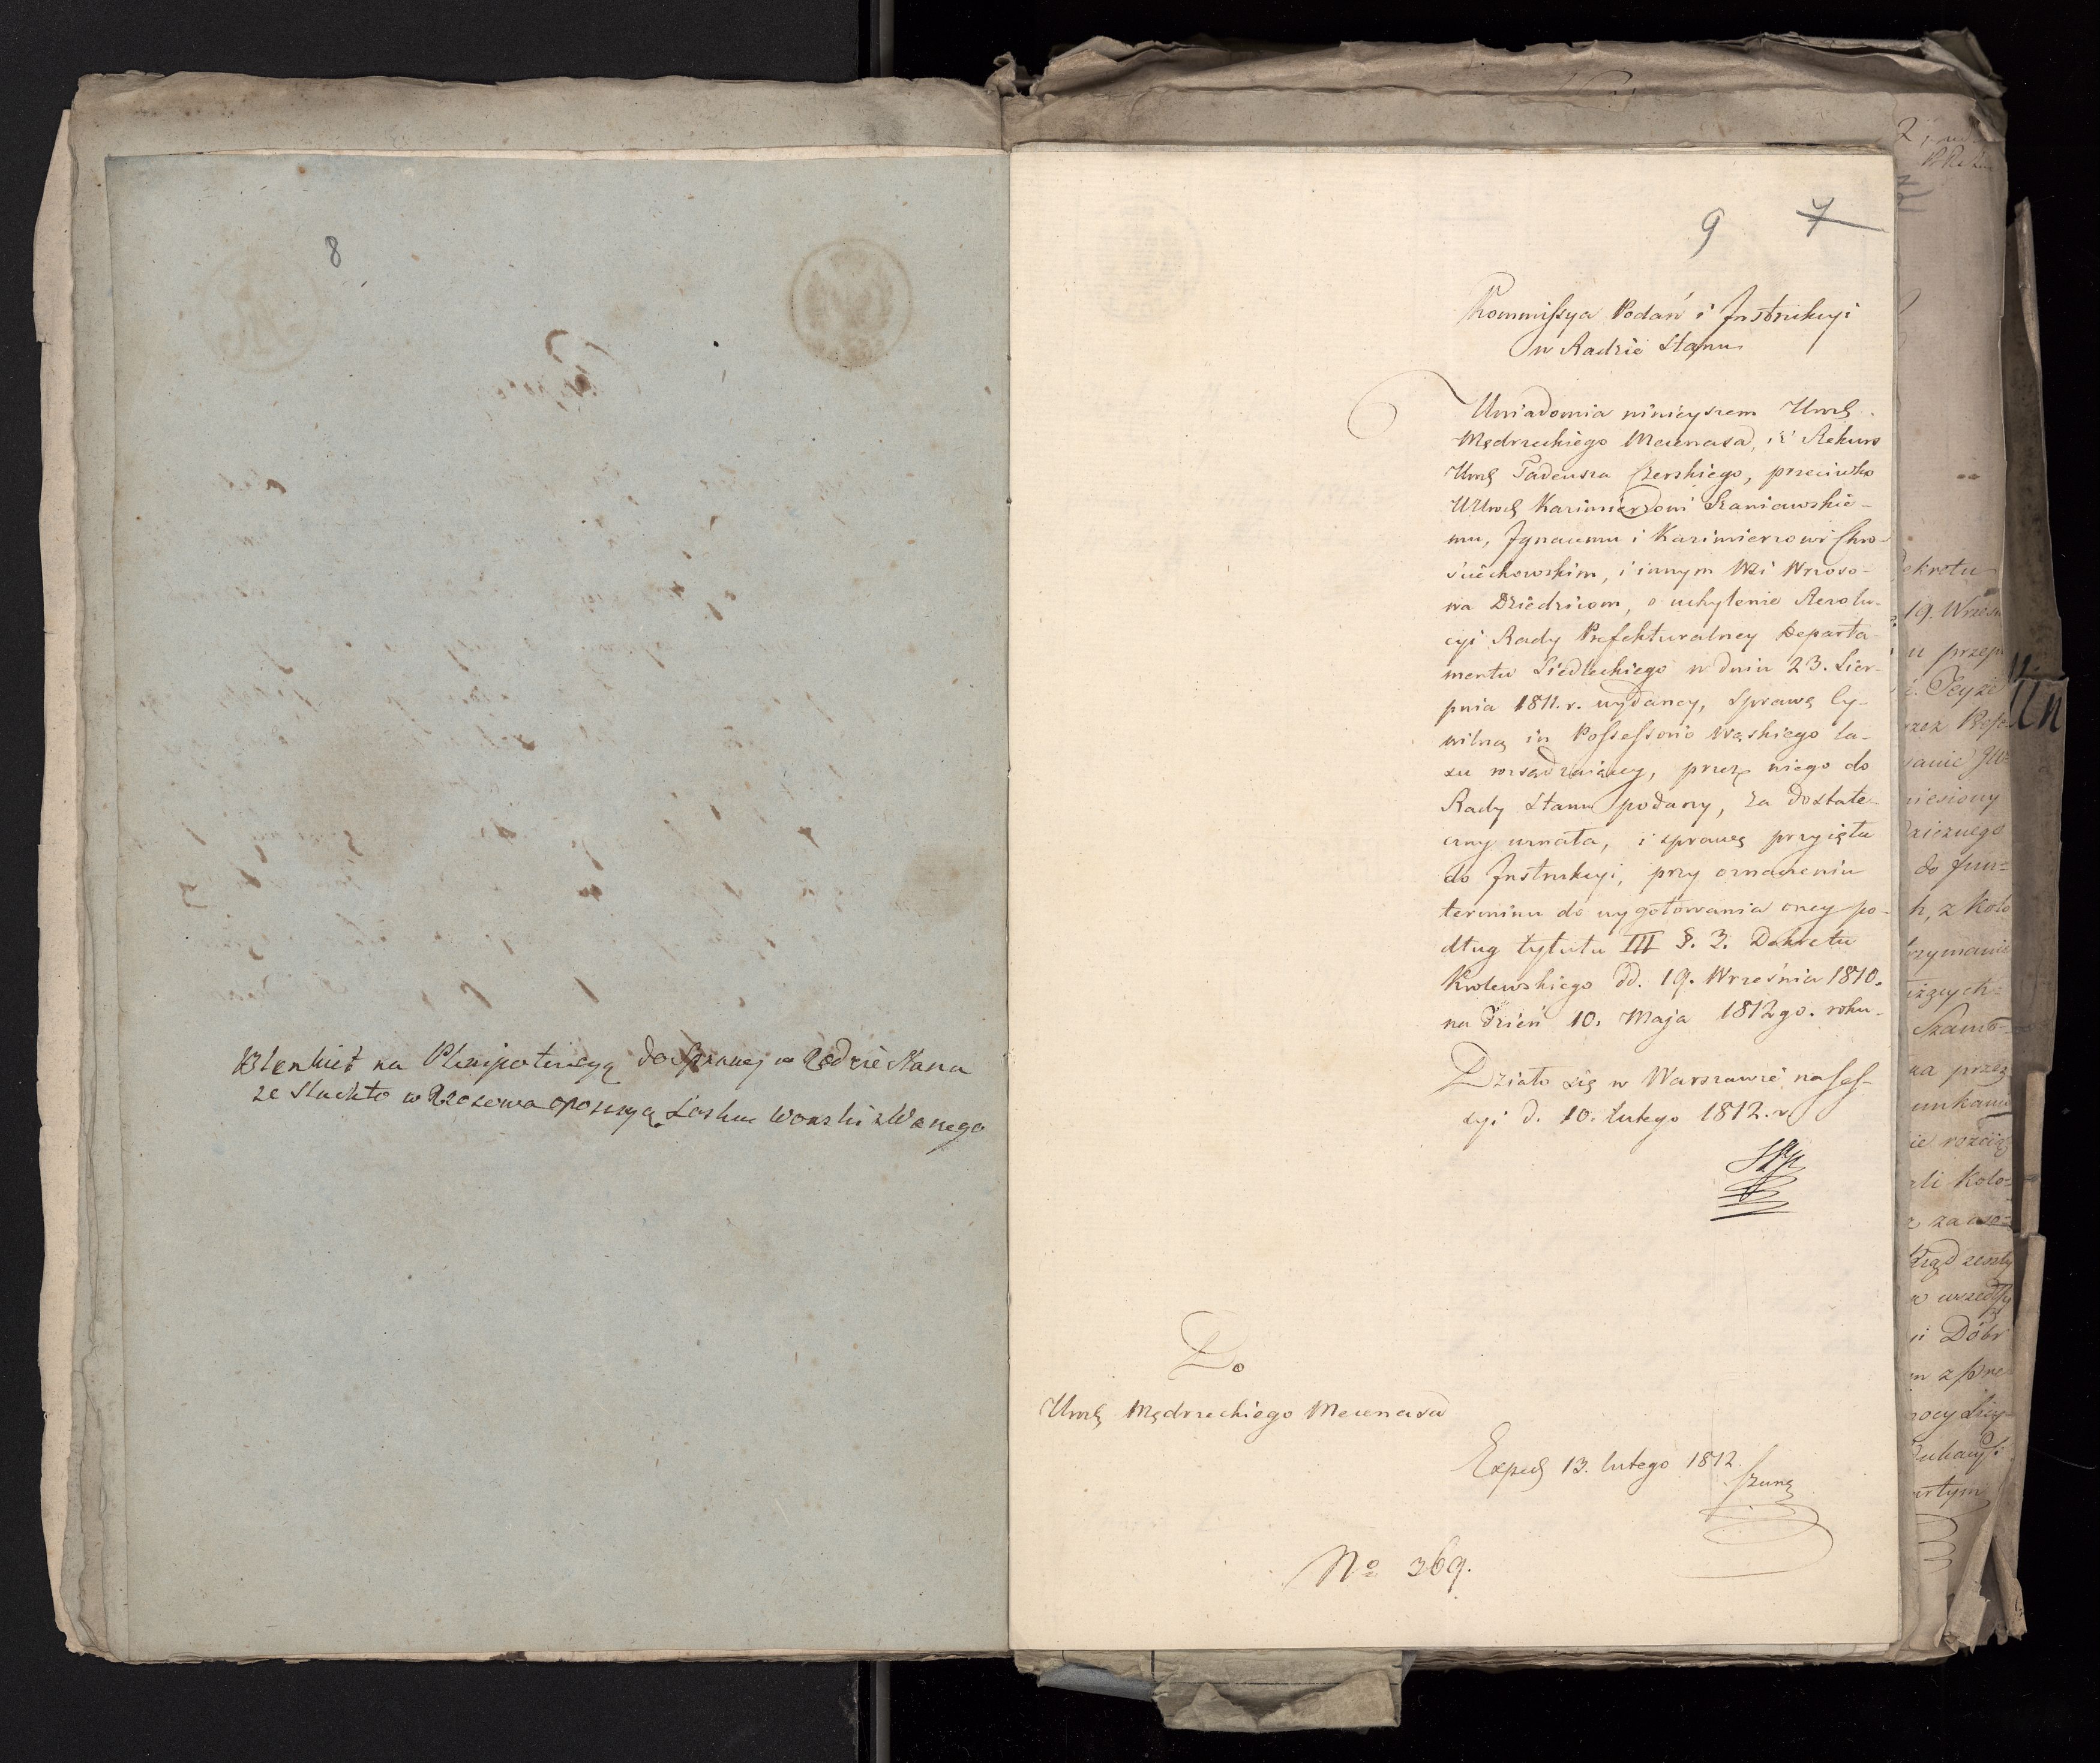 8
Blenkiet na Plenipotencyą do Sprawy w Radzie Stanu
ze Slachto w Rzosowa oposseyą Lasku Wonski zWanego
9 7
Kommissya Podań i Instrukcyi
w Radzie Stanu
Uwiadomia ninieyszem Urodz.
Mędrzeckiego Mecenasa, iż Rekurs
Urodz Tadeusza Czerskiego, przeciwko
UUrodz Kazimierzowi Szaniawskie-
mu, Ignacemu i Kazimierzowi Chro-
ściechowskim, i innym Wsi Wrzoso-
wa Dziedzicom, o uchylenie Rezolu-
cyi Rady Prefekturalney Departa-
mentu Siedleckiego w dniu 23. Sier-
pnia 1811. r. wydaney, sprawę Cy-
wilną in Possessorio Wąskiego la-
su rozsądzaiącey, przez niego do
Rady Stanu podany, za dostate-
czny uznała, i sprawę przyięła
do Instrukcyi, przy oznaczeniu
terminu do wygotowania oney po-
dług tytułu III §. 3. Dekretu
Krolewskiego dd. 19. Września 1810.
na dzień 10. Maja 1812go. roku.
Działo się w Warszawie na Ses-
syi d. 10. lutego 1812. r.
Do
Urodz Mędrzeckiego Mecenasa
Exped 13. lutego 1812.
No 369.
ekretu
19. Wrześ
u przep